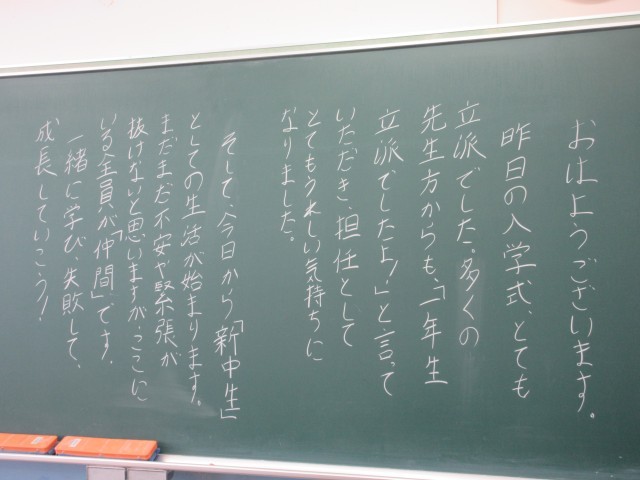 おはようございます。
昨日の入学式、とても
立派でした。多くの
先生方からも、「一年生
立派でしたよ!」と言って
いただき、担任として
とてもうれしい気持ちに
なりました。
そして、今日から「新中生」
としての生活が始まります。
まだまだ不安や緊張が
抜けないと思いますが、ここに
いる全員が「仲間」です。
一緒に学び、失敗して、
成長していこう!